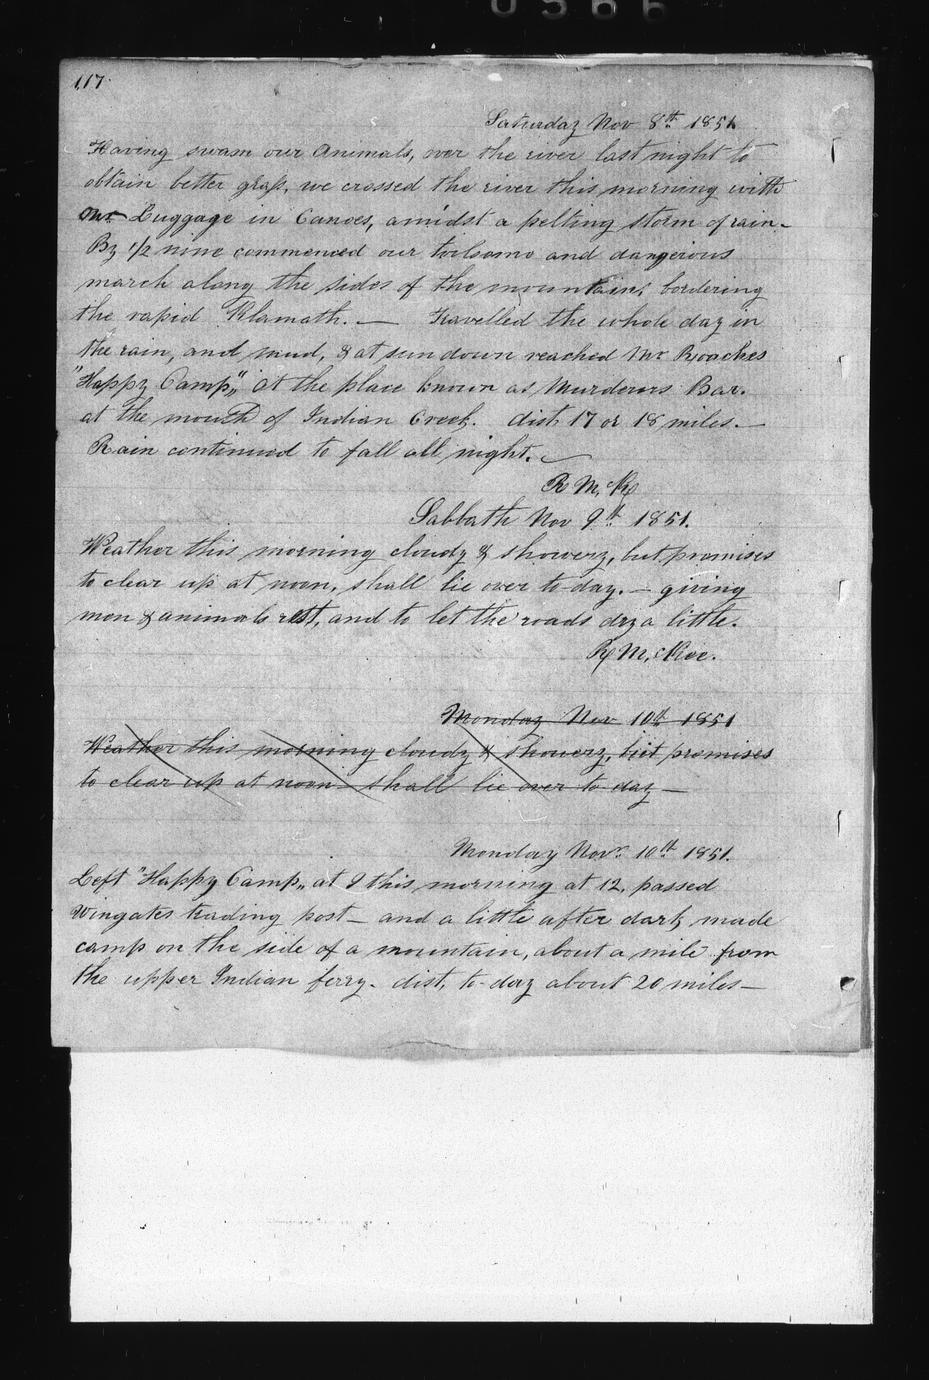 0366
117
Saturday Nov 8th 1851
Having swam our Animals, over the river last night to
obtain better grass, we crossed the river this morning with
our Luggage in Canoes, amidst a pelting storm of rain-
By 1/2 nine commenced our toilsome and dangerous
march along the sides of the mountains, bordering
the rapid Klamath. — Travelled the whole day in
the rain, and mud, & at sun down reached Mr Roaches
"Happy Camp" at the place known as Murderers Bar.
at the mouth of Indian Creek. dist. 17 or 18 miles.—
Rain continued to fall all night.
R McK
Sabbath Nov 9th 1851.
Weather this morning cloudy & showery, but promises
to clear up at noon, shall lie over to-day. — giving
men & animals rest, and to let the roads dry a little.
R McKee.
Monday Nov 10th 1851
Weather this morning cloudy & showery, but promises
to clear up at noon — shall lie over to day —
Monday Novr 10th 1851.
Left "Happy Camp" at 9 this morning at 12, passed
Wingates trading post — and a little after dark made
camp on the side of a mountain, about a mile from
the upper Indian ferry. dist. to-day about 20 miles —